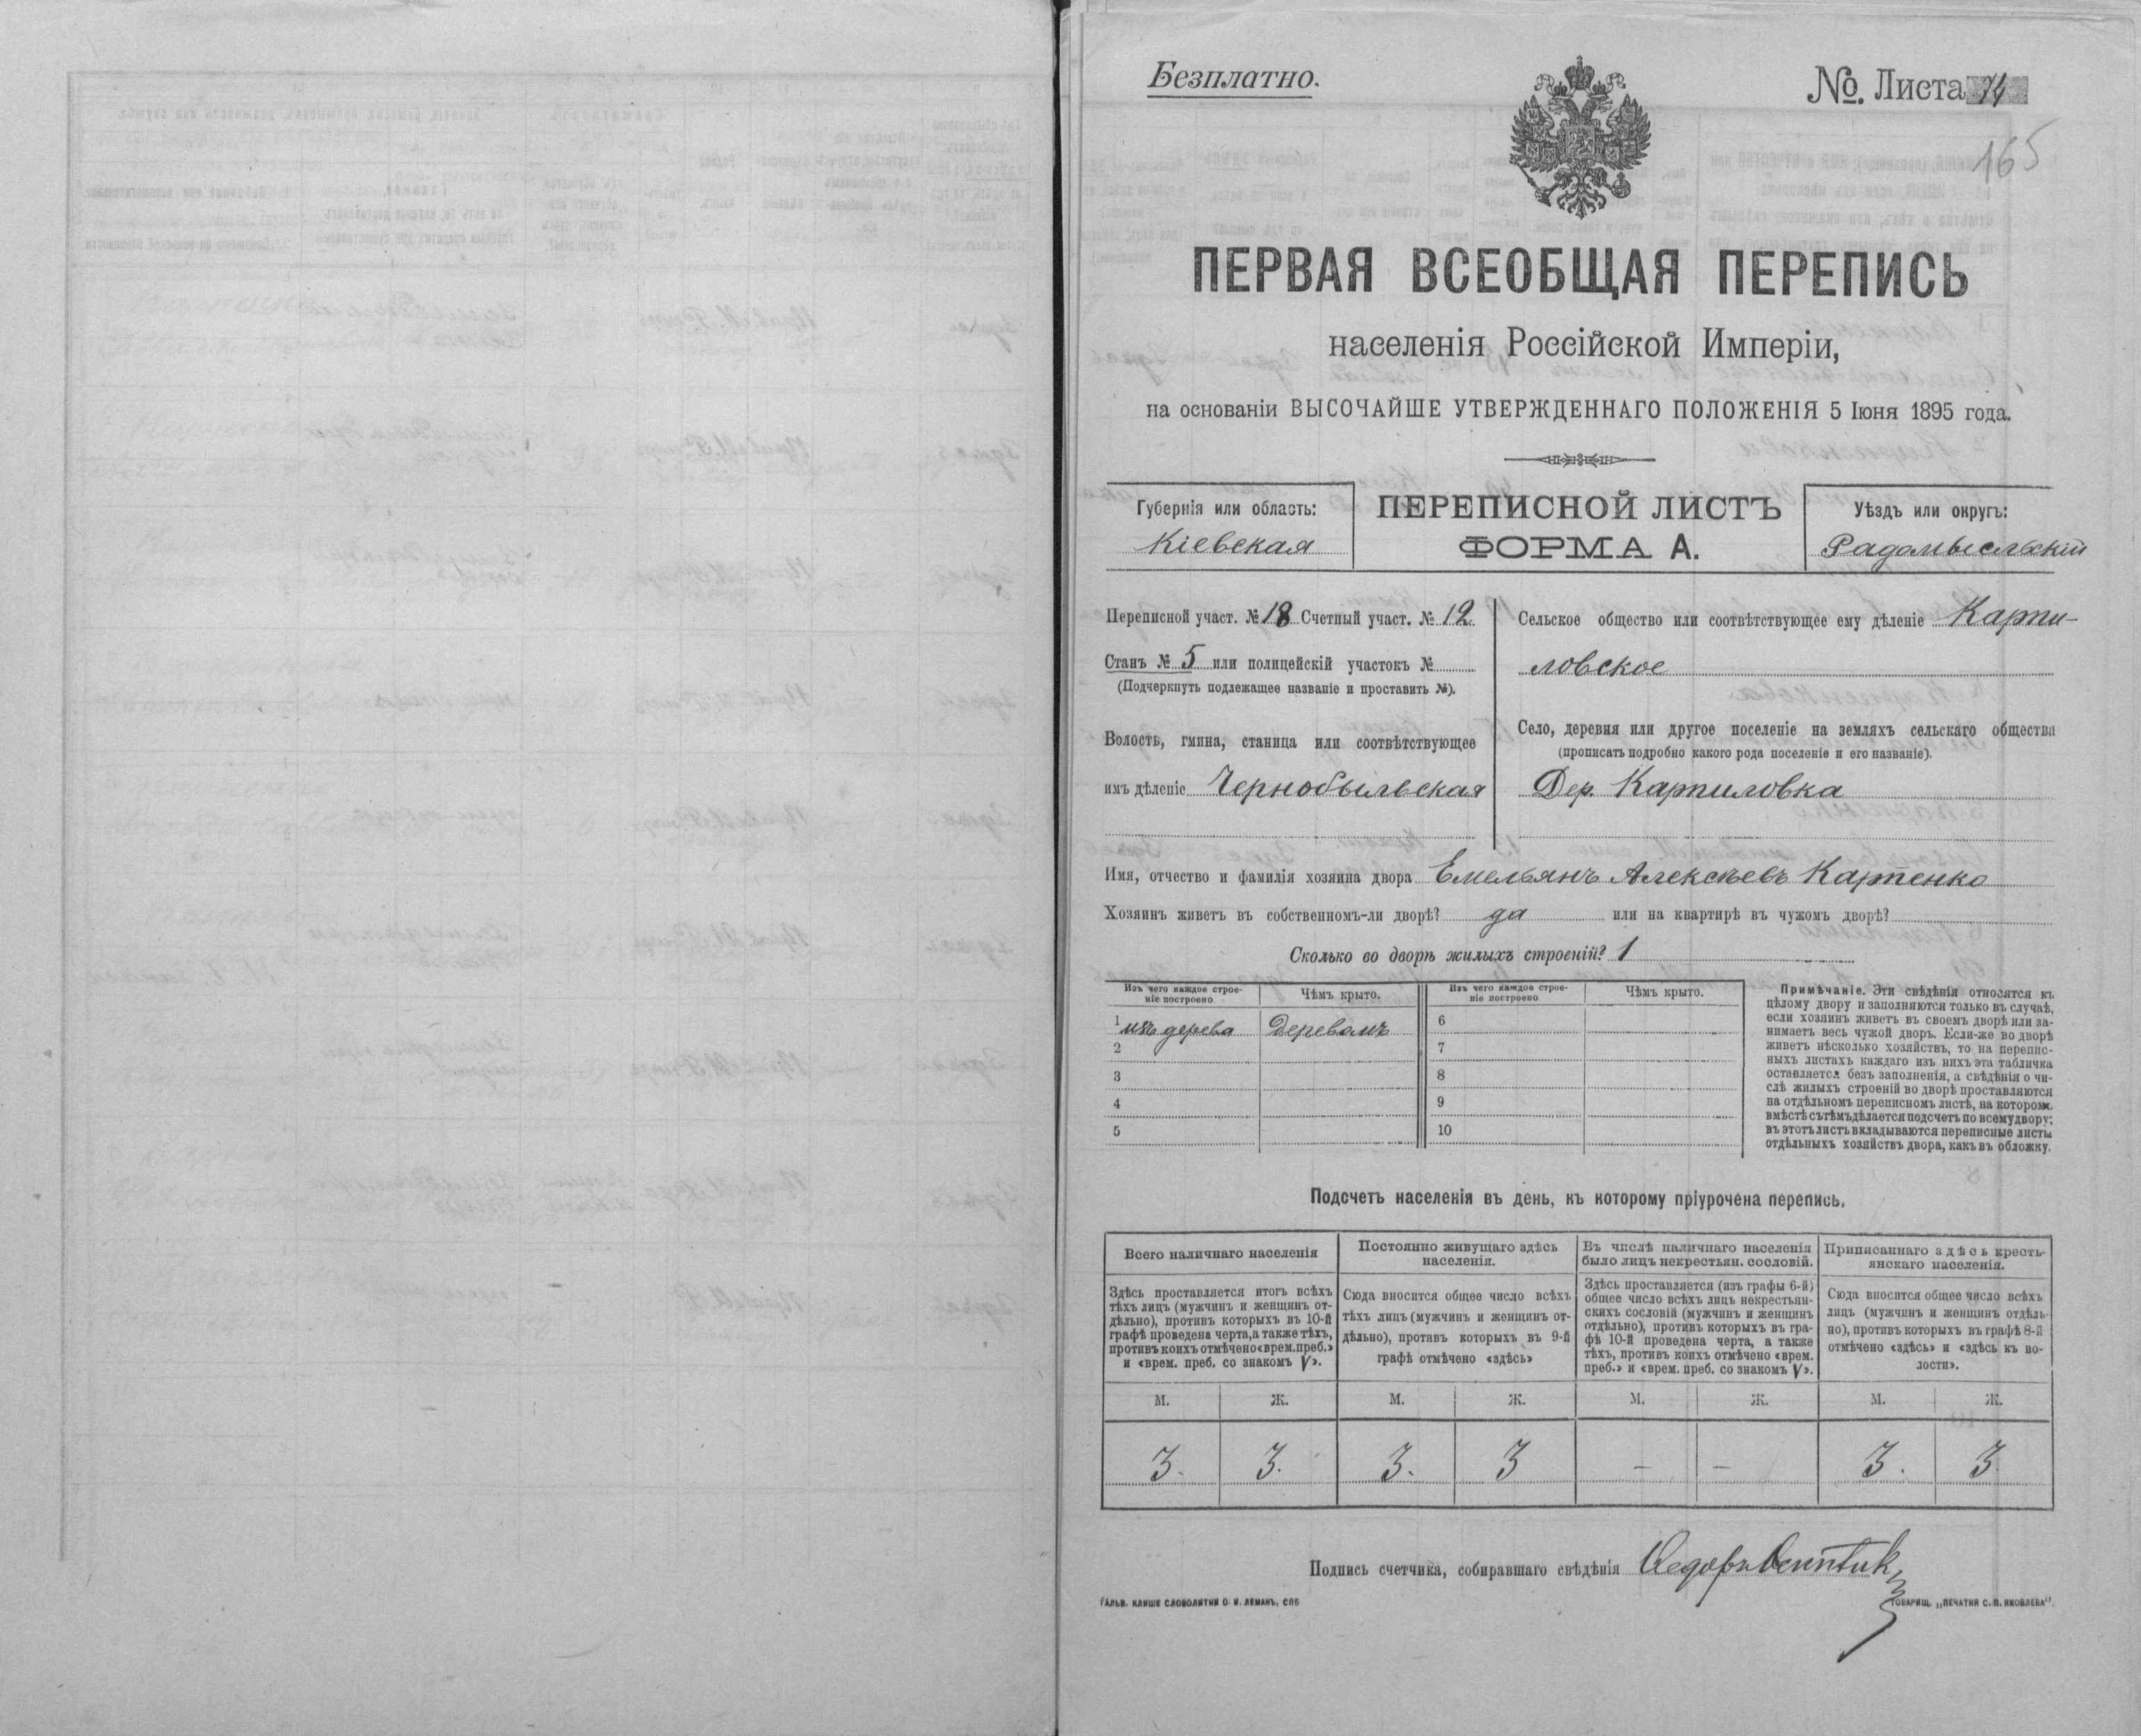 Безплатно.
№. Листа 74
165
ПЕРВАЯ ВСЕОБЩАЯ ПЕРЕПИСЬ
населенія Россійской Имперіи,
на основаніи ВЫСОЧАЙШЕ УТВЕРЖДЕННАГО ПОЛОЖЕНІЯ 5 Іюня 1895 года.
Губернія или область:
Кіевская
ПЕРЕПИСНОЙ ЛИСТЪ
ФОРМА А.
Уѣздъ или округъ:
Радомысльскій
Переписной участ. № 18 Счетный участ. № 12
Станъ № 5 или полицейскій участокъ №
(Подчеркнуть подлежащее названіе и проставить №).
Волость, гмина, станица или соотвѣтствующее
имъ дѣленіе Чернобыльская
Сельское общество или соотвѣтствующее ему дѣленіе Карпи-
ловское
Село, деревня или другое поселеніе на земляхъ сельскаго общества
(прописать подробно какого рода поселеніе и его названіе).
Дер. Карпиловка
Имя, отчество и фамилія хозяина двора Емельянъ Алексѣевъ Карпенко
Хозяинъ живетъ въ собственномъ-ли дворѣ? да или на квартирѣ въ чужомъ дворѣ?
Сколько во дворѣ жилыхъ строеній? 1
Изъ чего каждое строе-
ніе построено
Чѣмъ крыто.
Изъ чего каждое строе-
ніе построено
Чѣмъ крыто.
1 изъ дерева Деревомъ
2
3
4
5
6
7
8
9
10
Примѣчаніе. Эти свѣдѣнія относятся къ
цѣлому двору и заполняются только въ случаѣ,
если хозяинъ живетъ въ своемъ дворѣ или за-
нимаетъ весь чужой дворъ. Если-же во дворѣ
живетъ нѣсколько хозяйствъ, то на перепис-
ныхъ листахъ каждаго изъ нихъ эта табличка
оставляется безъ заполненія, а свѣдѣнія о чи-
слѣ жилыхъ строеній во дворѣ проставляются
на отдѣльномъ переписномъ листѣ, на которомъ
вмѣстѣ съ тѣмъ дѣлается подсчетъ по всему двору;
въ этотъ листъ вкладываются переписные листы
отдѣльныхъ хозяйствъ двора, какъ въ обложку.
Подсчетъ населенія въ день, къ которому пріурочена перепись.
Всего наличнаго населенія
Здѣсь проставляется итогъ всѣхъ
тѣхъ лицъ (мужчинъ и женщинъ от-
дѣльно), противъ которыхъ въ 10-й
графѣ проведена черта, а также тѣхъ,
противъ коихъ отмѣчено «врем. преб.»
и «врем. преб. со знакомъ V».
Постоянно живущаго здѣсь
населенія.
Сюда вносится общее число всѣхъ
тѣхъ лицъ (мужчинъ и женщинъ от-
дѣльно), противъ которыхъ въ 9-й
графѣ отмѣчено «здѣсь»
Въ числѣ наличнаго населенія
было лицъ некрестьян. сословій.
Здѣсь проставляется (изъ графы 6-й)
общее число всѣхъ лицъ некрестьян-
скихъ сословій (мужчинъ и женщинъ
отдѣльно), противъ которыхъ въ гра-
фѣ 10-й проведена черта, а также
тѣхъ, противъ коихъ отмѣчено «врем.
преб.» и «врем. преб. со знакомъ V».
Приписаннаго здѣсь кресть-
янскаго населенія.
Сюда вносится общее число всѣхъ
лицъ (мужчинъ и женщинъ отдѣль-
но), противъ которыхъ въ графѣ 8-й
отмѣчено «здѣсь» и «здѣсь къ во-
лости».
М. Ж. М. Ж. М. Ж. М. Ж.
3. 3. 3. 3 – – 3. 3.
Подпись счетчика, собиравшаго свѣдѣнія
ГАЛЬВ. КЛИШЕ СЛОВОЛИТНИ О. И. ЛЕМАНЪ, СПБ
ТОВАРИЩ. „ПЕЧАТНЯ С. П. ЯКОВЛЕВА“.